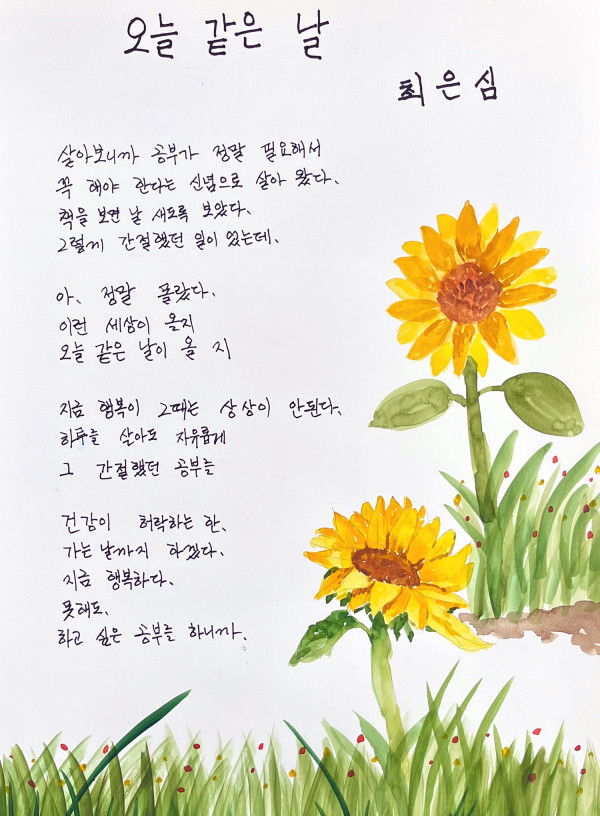 오늘 같은 날
최은심
살아보니까 공부가 정말 필요해서
꼭 해야 한다는 신념으로 살아 왔다.
책을 보면 날 새도록 보았다.
그렇게 간절했던 일이 었는데.
아, 정말 몰랐다.
이런 세상이 올지
오늘 같은 날이 올 지
지금 행복이 그때는 상상이 안된다.
하루를 살아도 자유롭게
그 간절했던 공부를
건강이 허락하는 한,
가는 날까지 하겠다.
지금 행복하다.
못해도,
하고 싶은 공부를 하니까.